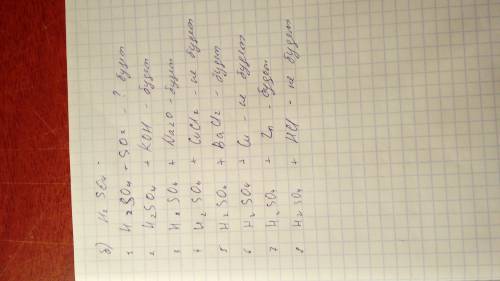 б) H2SO4 -
1 H2SO4 + SO2 - ? будет
2 H2SO4 + KOH - будет
3 H2SO4 + Na2O - будет
4 H2SO4 + CuCl2 - не будет
5 H2SO4 + BaCl2 - будет
6 H2SO4 + Cu - не будет
7 H2SO4 + Zn - будет
8 H2SO4 + HCl - не будет